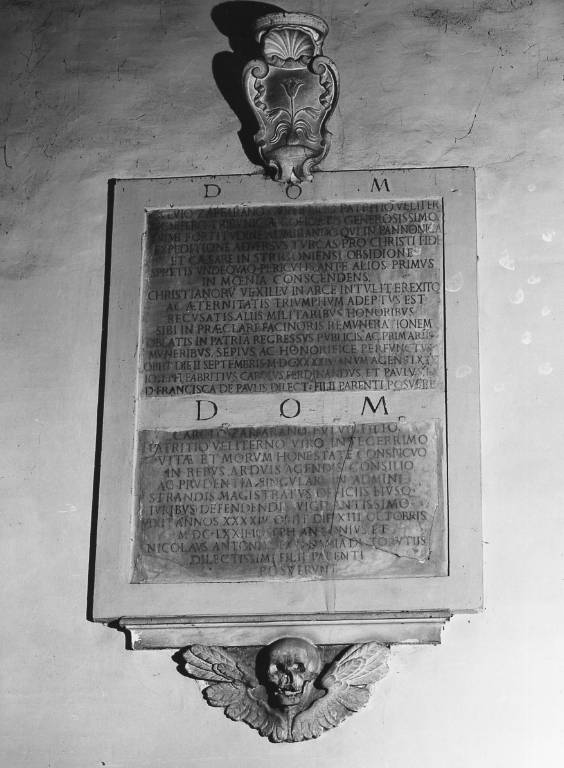 D O M
ZAFFARANO PATRITIO VELITER
SIGNIFERO TRIBVNICIA GENEROSISSIMO
FORTITVDINE ADMIRANDO QVI IN PANNONICA
EXPEDITIONE ADVERSVS TVRCAS PRO CHRISTI FIDE
ET CÆSARE IN STRIGONIENSI OBSIDIONE
SPRETIS VNDEQVAQ PERICVLIS ANTE ALIOS PRIMVS
IN MŒNIA CONSCENDENS
CHRISTIANORV VEXILLV IN ARCE INTVLIT EREXITQ
AC ÆTERNITATIS TRIVMPHVM ADEPTVS EST
RECVSATIS ALIIS MILITARIBVS HONORIBVS
SIBI IN PRÆCLARI FACINORIS REMVNERATIONEM
OBLATIS IN PATRIA REGRESSVS PVBLICIS AC PRIMARIIS
MVNERIBVS SEPIVS AC HONORIFICE PERFVNCTVS
OBIIT DIE II SEPTEMBRIS ANVM AGENS
IOSEPH FABRITIVS CAROLVS FERDINANDVS ET PAVLVS EX
D FRANCISCA DE PAVLIS DILECT FILII PARENTI POSVERE
D O M
CAROLO ZAFFARANO FVLVII FILIO
PATRITIO VELITERNO VIRO INTEGERRIMO
VITÆ ET MORVM HONESTATE CONSPICVO
IN REBVS ARDVIS AGENDIS CONSILIO
AC PRVDENTIA SINGVLARI IN ADMINI
STRANDIS MAGISTRATVS OFFICIIS EIVSQ
IVRIBVS DEFENDENDIS VIGILANTISSIMO
VIXIT ANNOS XXXXIV OBIIT DIE XIII OCTOBRIS
IOSEPH ANTONIVS ET
NICOLAVS ANTONIVS DE TORVTIIS
DILECTISSIMI FILII PARENTI
POSVERVNT